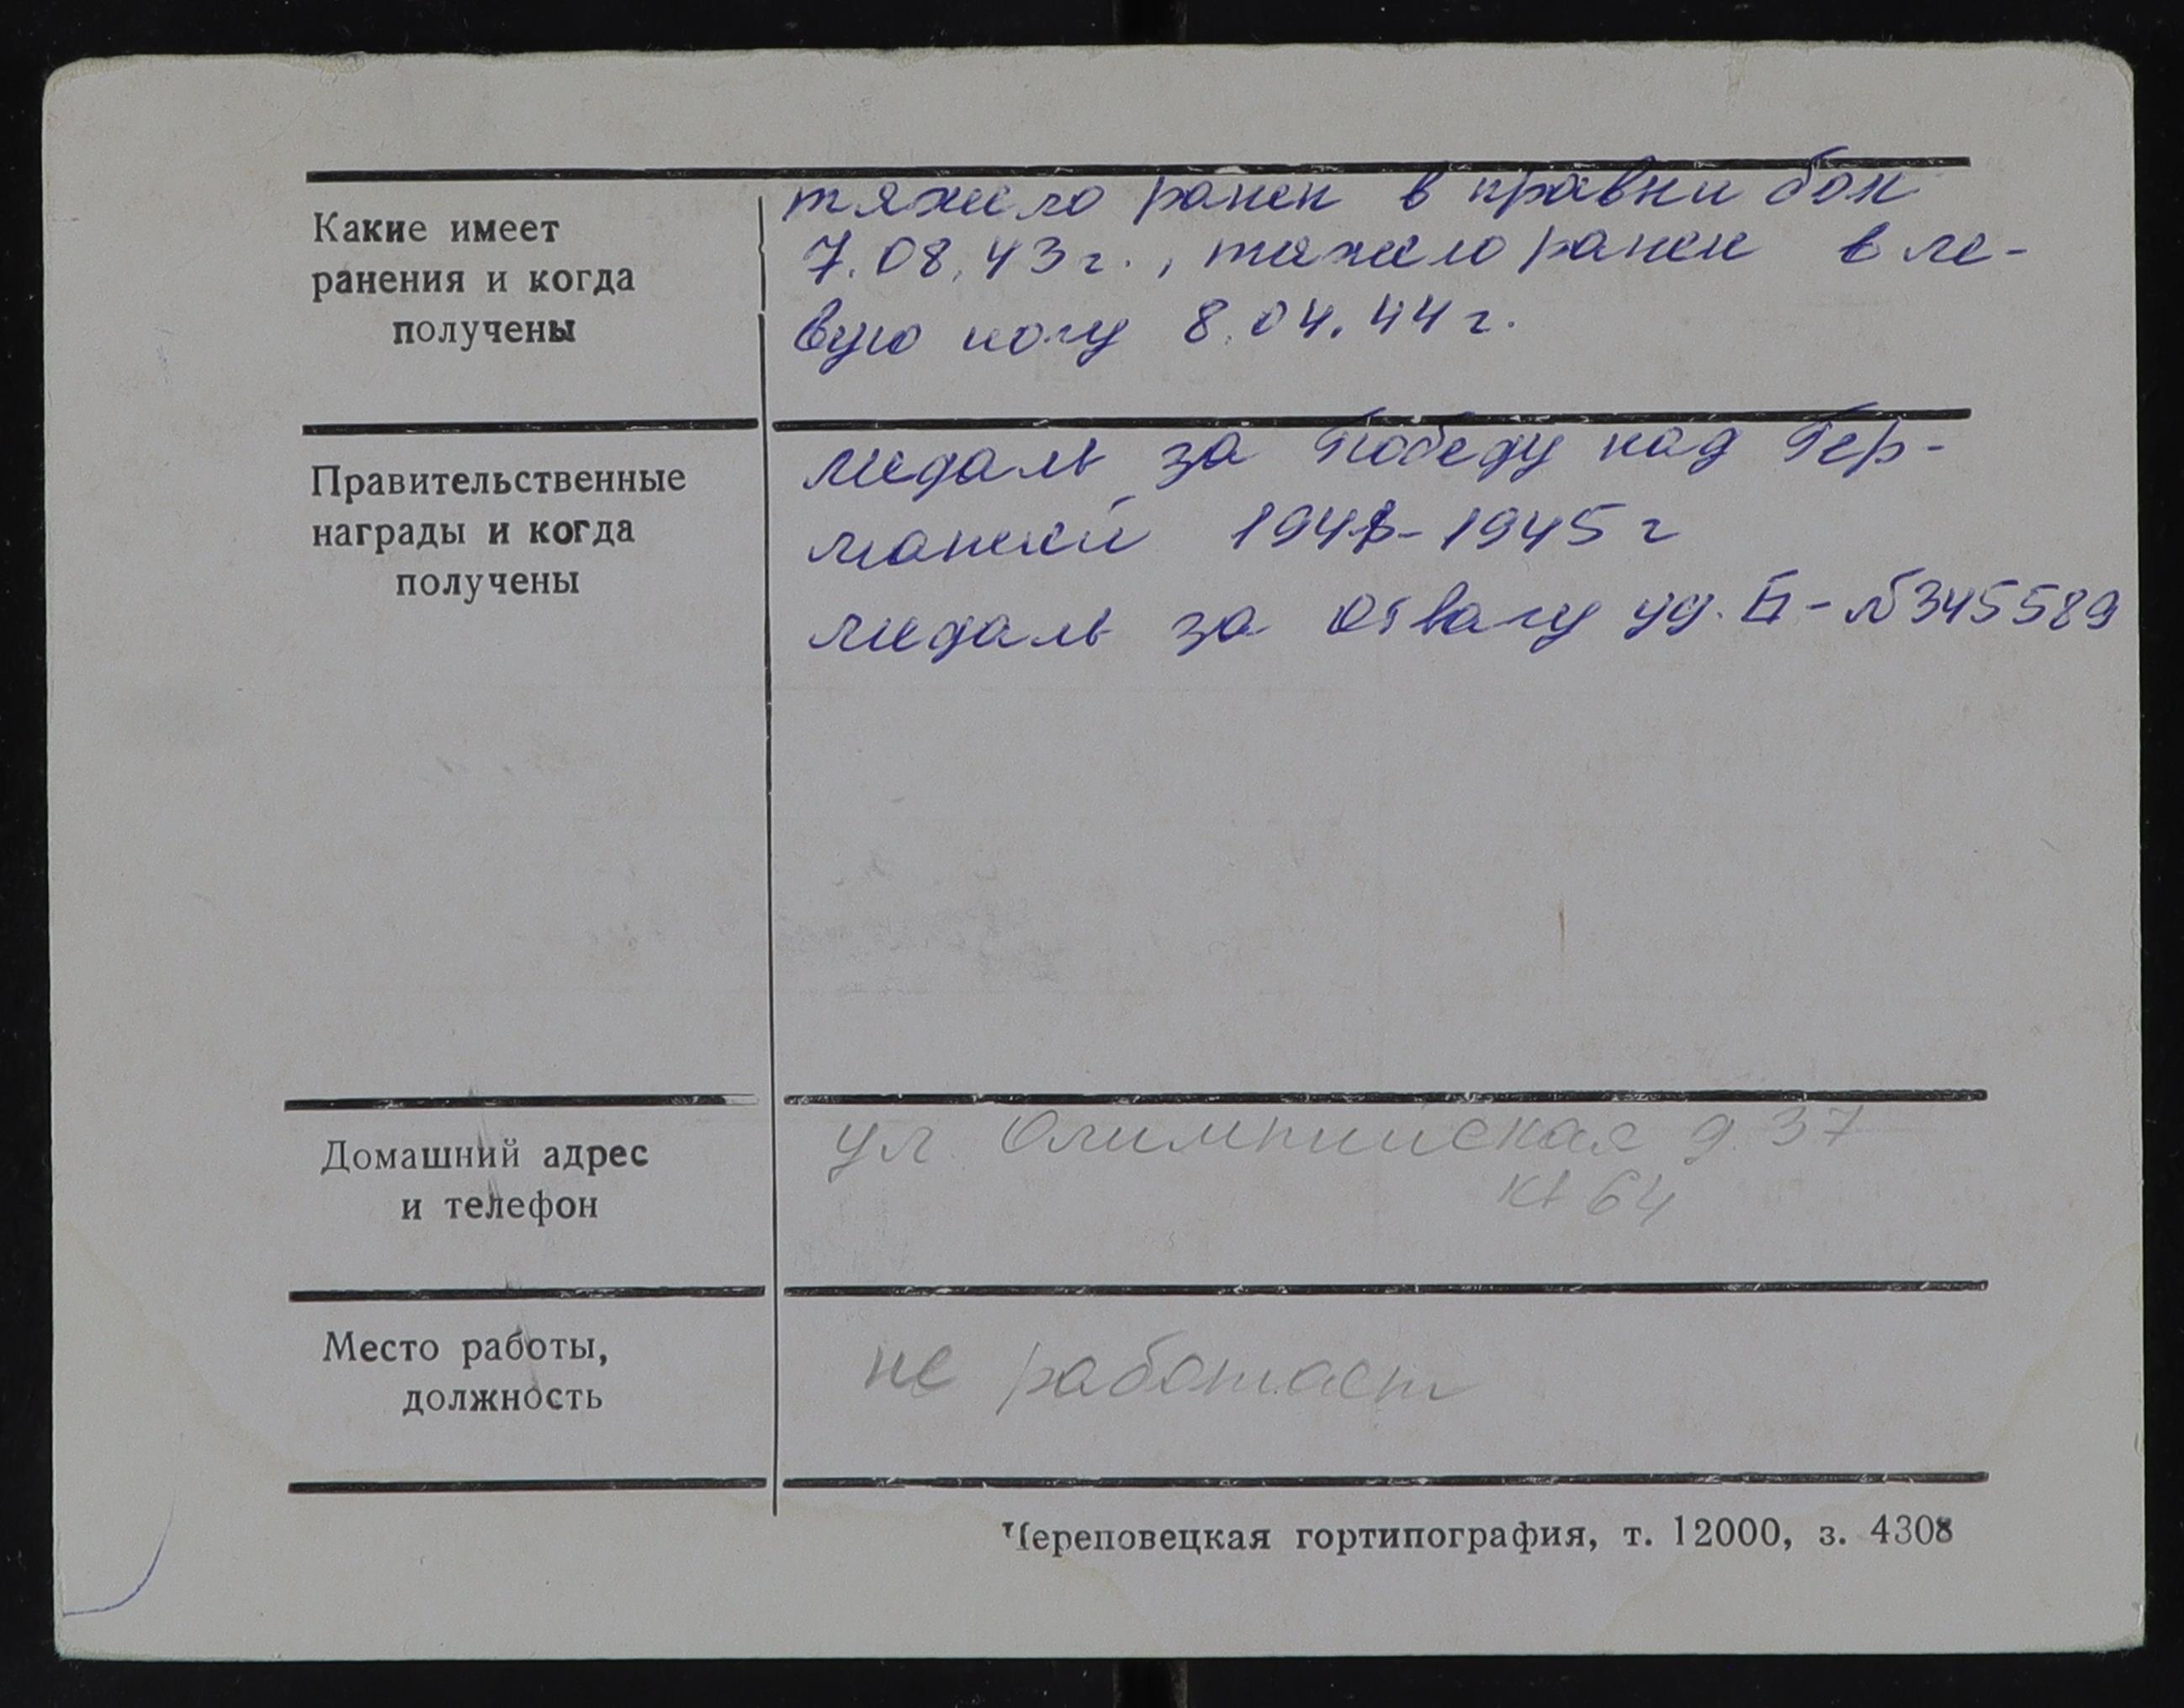 Какие имеет
ранения и когда
получены
тяжело ранен в правый бок
7.08.43г., тяжело ранен в ле-
вую ногу 8.04.44г.
Правительственные
награды и когда
получены
медаль за Победу над Гер-
манией 1941-1945г
медаль за Отвагу уд. Б-№345589
Домашний адрес
и телефон
ул. Олимпийская д. 37
кв 64
Место работы,
должность
не работает
Череповецкая гортипография, т. 12000, з. 4308